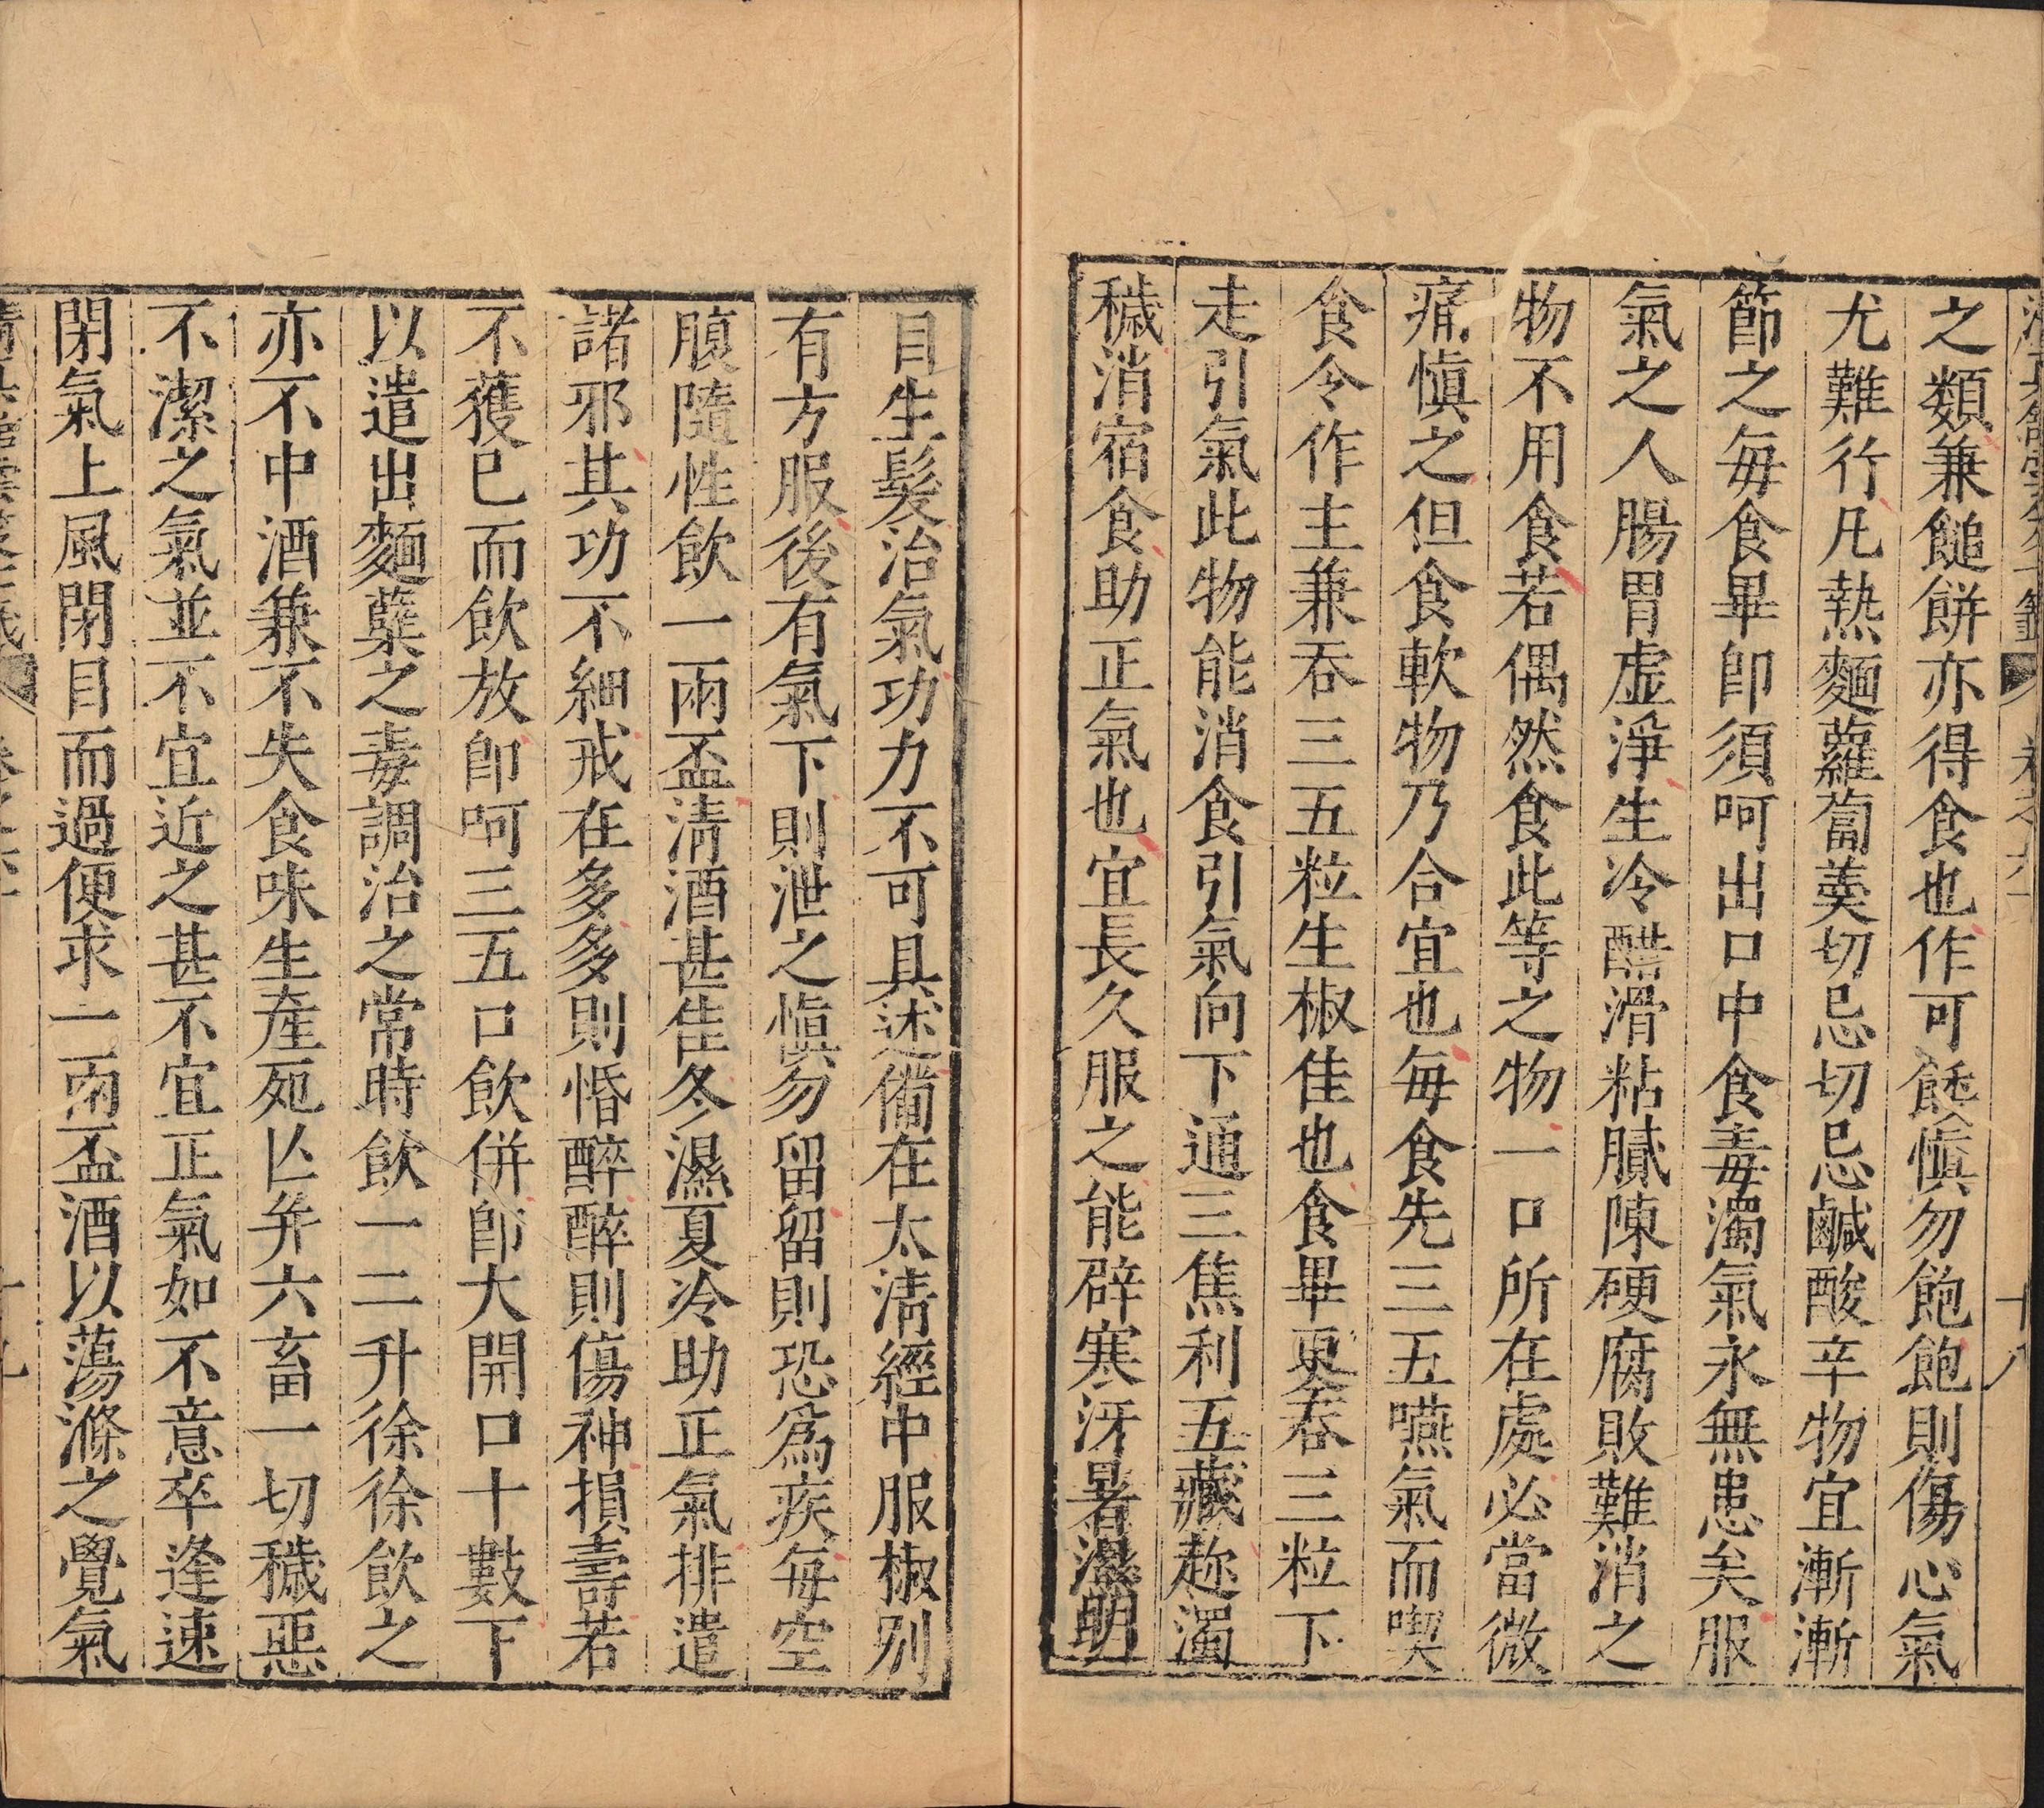 之類兼䭔餅亦得食也作可餻慎勿飽飽則傷心氣
尤難行凡熱麵蘿蔔羮切忌切忌鹹酸辛物宜漸漸
節之每食畢卽須呵出口中食毒濁氣永無患矣服
氣之人腸胃虛淨生冷醋滑粘膩陳硬腐敗難消之
物不用食若偶然食此等之物一口所在處必當微
痛慎之但食軟物乃合宜也每食先三五嚥氣而喫
食令作主兼吞三五粒生椒佳也食畢更吞三粒下
走引氣此物能消食引氣向下通三焦利五藏趂濁
穢消宿食助正氣也宜長久服之能辟寒冴暑濕明
目生髮治氣功力不可具述備在太淸經中服椒別
有方服後有氣下則泄之慎勿留留則恐爲疾每空
腹隨性飲一兩盃淸酒甚佳冬濕夏冷助正氣排遣
諸邪其功不細戒在多多則惛醉醉則傷神損壽若
不獲已而飲放卽呵三五口飲併卽大開口十數下
以遣出麵蘖之毒調治之常時飲一二升徐徐飲之
亦不中酒兼不失食味生產死亾并六畜一切穢惡
不潔之氣並不宜近之甚不宜正氣如不意卒逢速
閉氣上風閉目而過便求一兩盃酒以蕩滌之覺氣